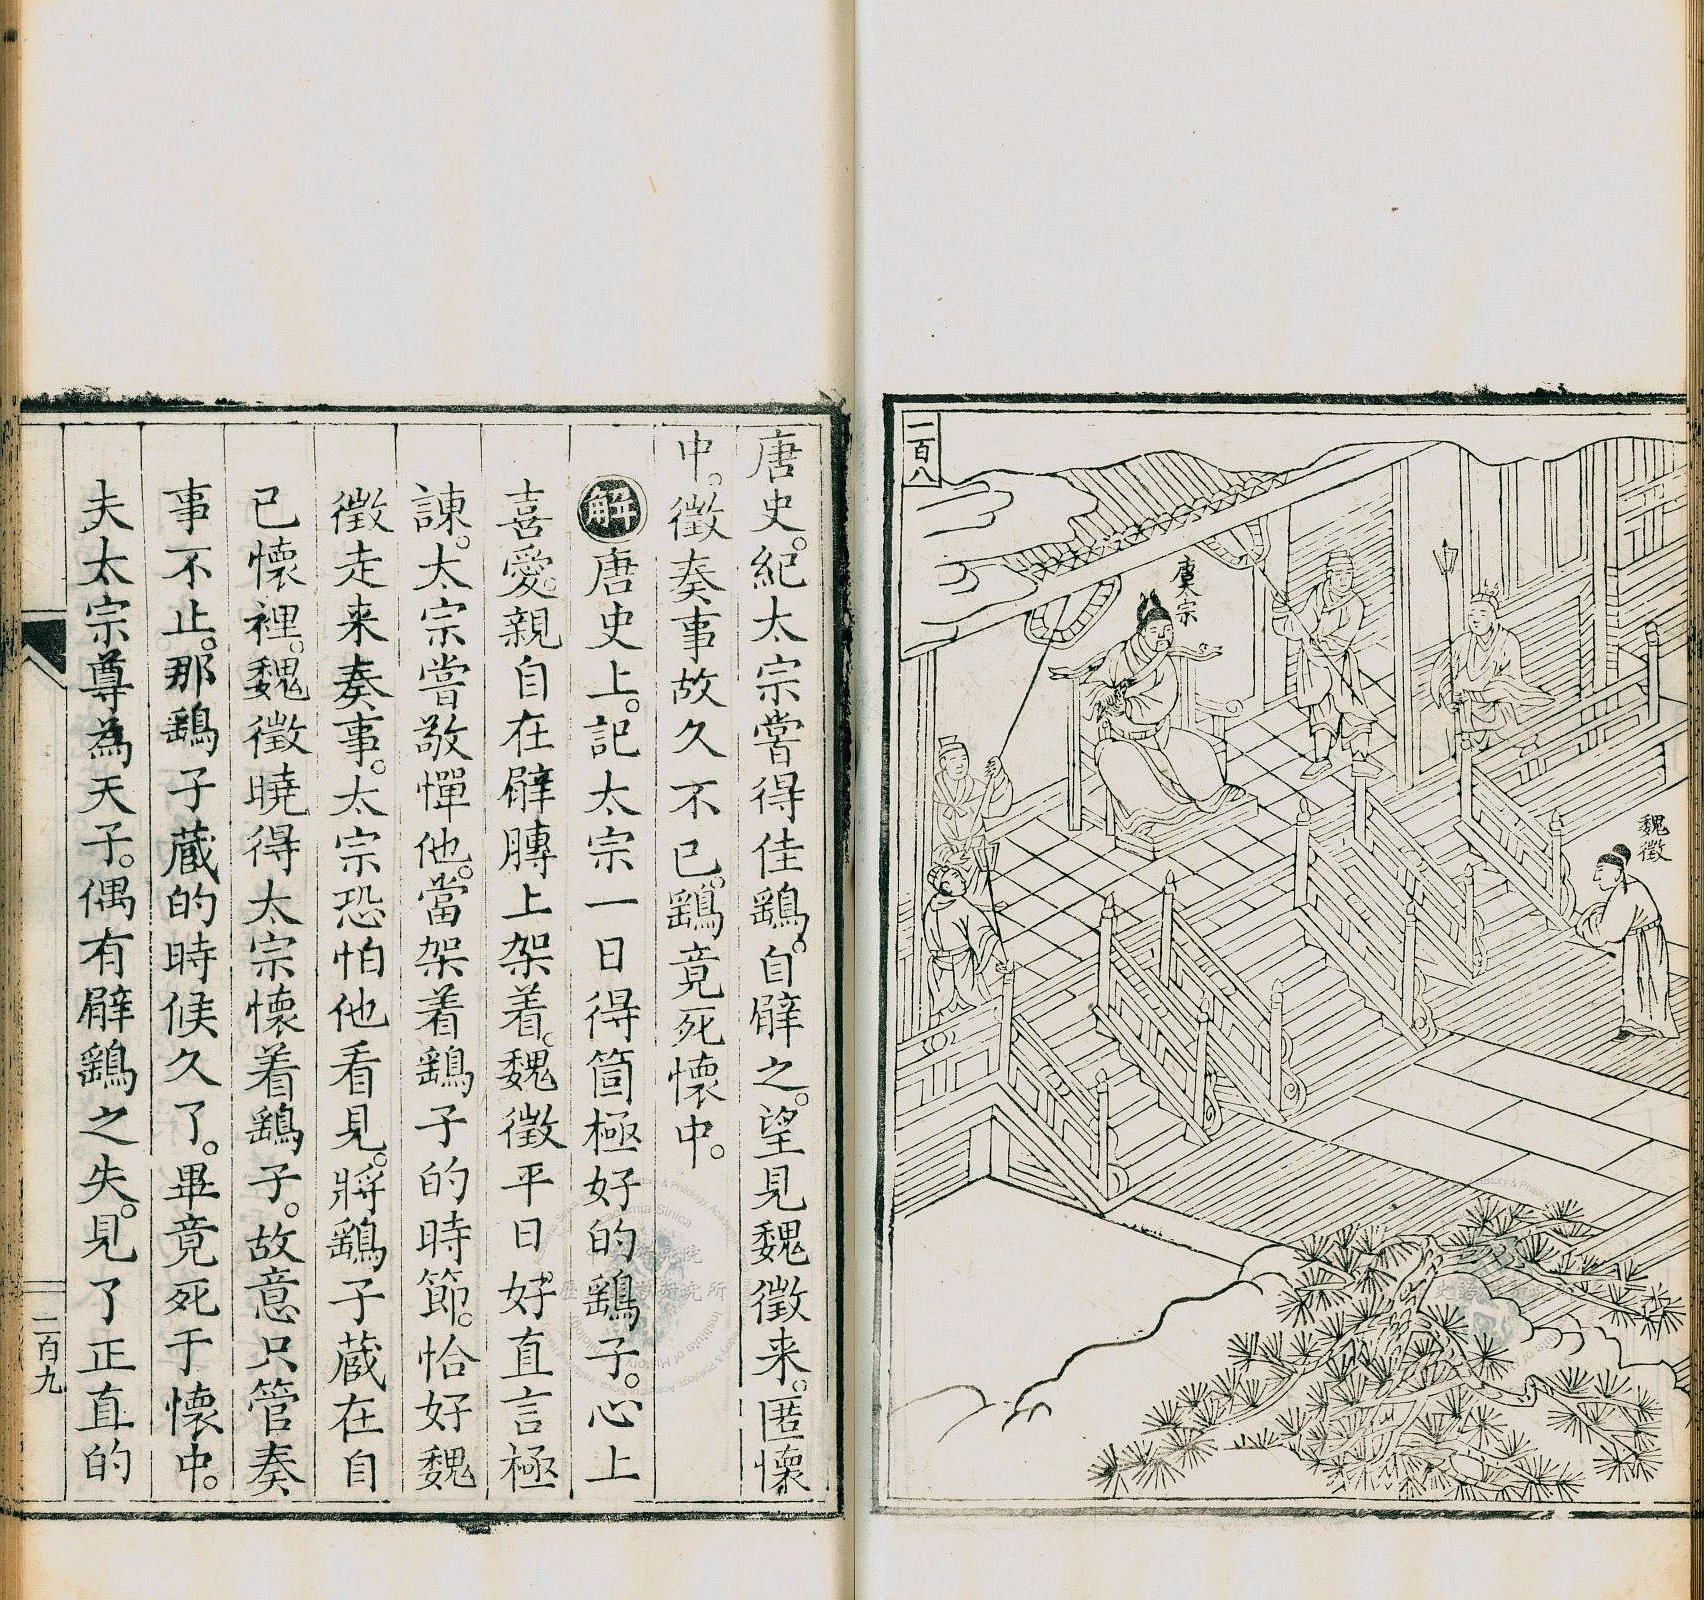 二百八
太宗
魏徵
唐史。紀太宗嘗得佳鷂。自臂之。望見魏徵来。匿懷
中。徵奏事故久不已。鷂竟死懷中。
解 唐史上。記太宗一日得箇極好的鷂子。心上
喜愛。親自在臂膊上架着。魏徵平日好直言極
諫。太宗嘗敬憚他。當架着鷂子的時節。恰好魏
徵走来奏事。太宗恐怕他看見。將鷂子藏在自
已懷裡。魏徵曉得太宗懷着鷂子。故意只管奏
事不止。那鷂子藏的時候久了。畢竟死于懷中。
夫太宗尊為天子。偶有臂鷂之失。見了正直的
二百九